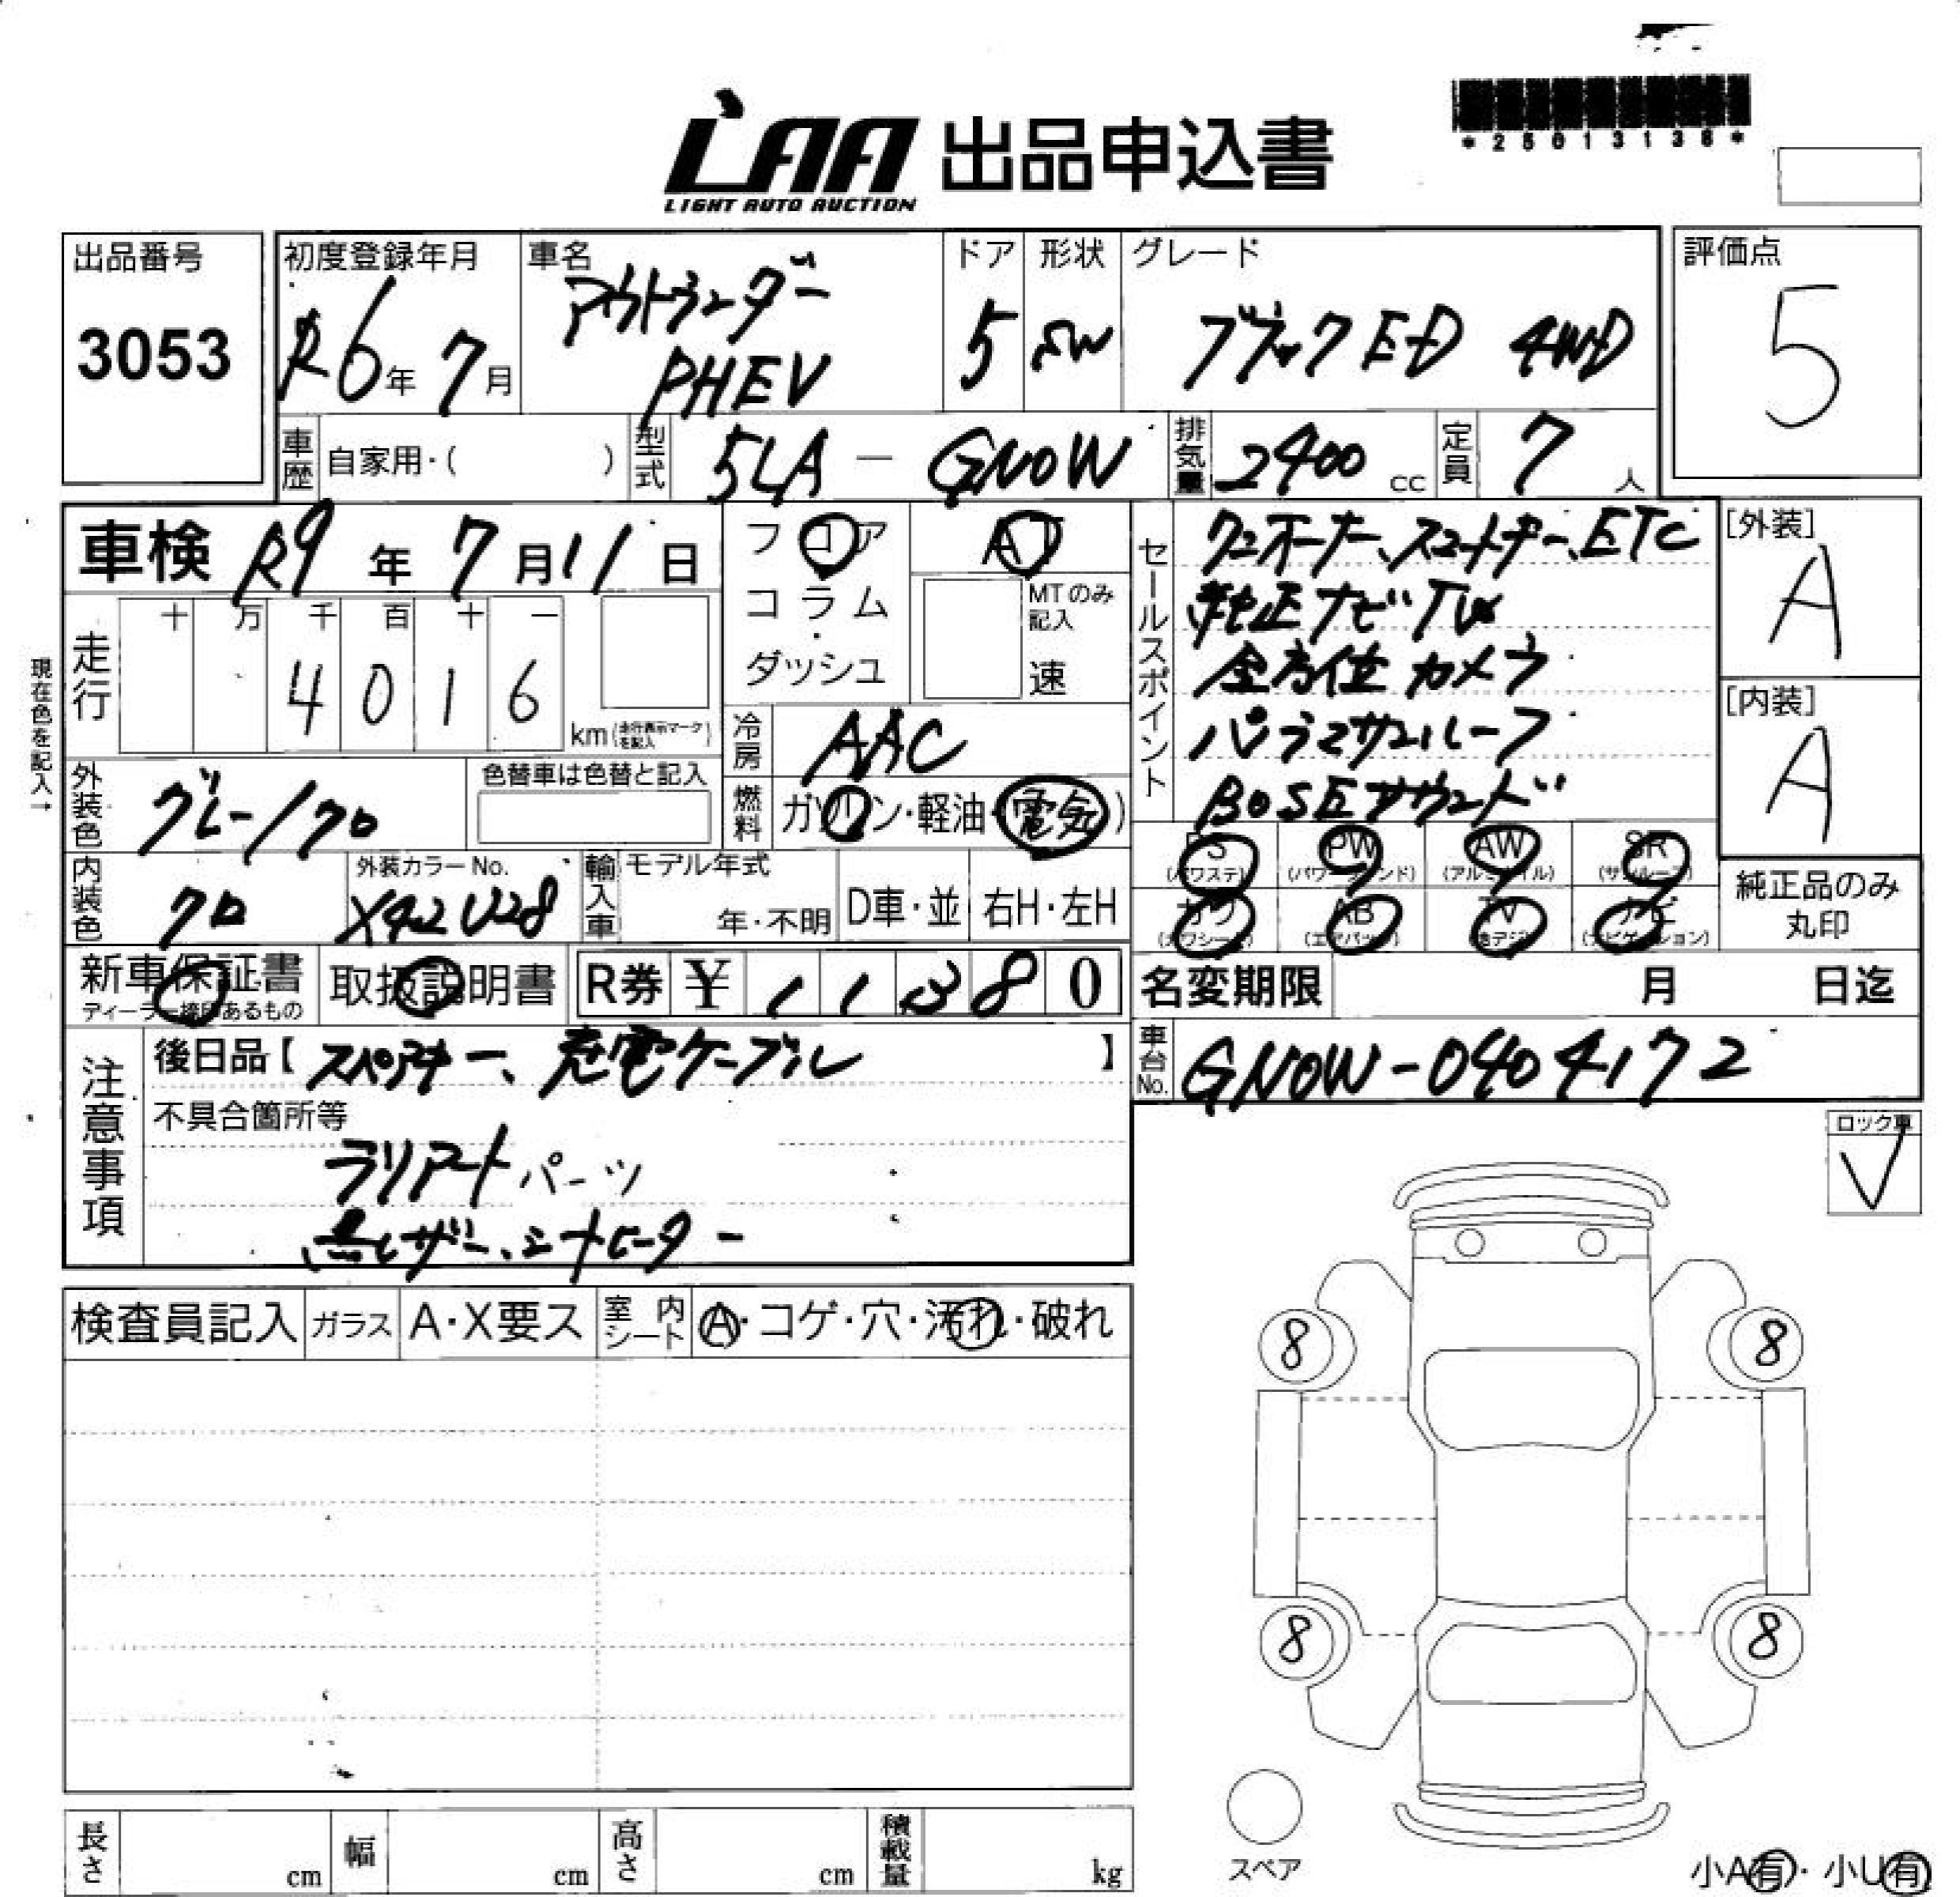 LAA 出品申込書
LIGHT AUTO AUCTION
*25013136*
出品番号
3053
初度登録年月
R6年 7月
車名
アウトランダー
PHEV
ドア
5
形状
SW
グレード
ブラックED 4WD
評価点
5
車歴 自家用・( )
型式 5LA - GN0W
排気量 2400 cc
定員 7 人
車検 R9年 7月11日
フロア
コラム
・
ダッシュ
AT
MTのみ
記入
速
セールスポイント
ワンオーナー、スマートキー、ETC
純正ナビTV
全方位カメラ
パノラマサンルーフ
BOSEサウンド
[外装]
A
[内装]
A
現在色を記入→
走行
十 万 千 百 十 一
4 0 1 6
km(走行表示マークを記入)
冷房 AAC
燃料 ガソリン・軽油・(電気)
外装色 グレー/クロ
色替車は色替と記入
内装色 クロ
外装カラーNo.
X42U28
輸入車
モデル年式
年・不明
D車・並
右H・左H
PS (パワステ)
PW (パワーウインド)
AW (アルミホイル)
SR (サンルーフ)
カワ (カワシート)
AB (エアバッグ)
TV (地デジ)
ナビ (ナビゲーション)
純正品のみ
丸印
新車保証書
ディーラー捺印あるもの
取扱説明書
R券 ¥ 1 1 3 8 0
名変期限 月 日迄
注意事項
後日品【 スペアキー、充電ケーブル 】
車台No. GN0W-0404172
不具合箇所等
ラリアートパーツ
黒レザー、シートヒーター
ロック車
V
検査員記入
ガラス
A・X要ス
室内シート
A・コゲ・穴・汚れ・破れ
8
8
8
8
スペア
長さ cm
幅 cm
高さ cm
積載量 kg
小A有・小U有